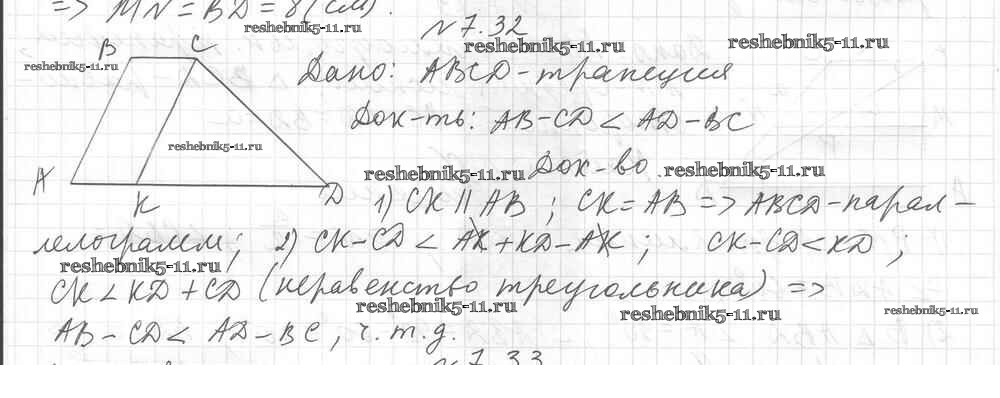 => MN = BD = 8 (см).
reshebnik5-11.ru
N 7.32
reshebnik5-11.ru
reshebnik5-11.ru
B C
reshebnik5-11.ru
Дано: ABCD - трапеция
Док-ть: AB - CD < AD - BC
reshebnik5-11.ru
reshebnik5-11.ru Док-во reshebnik5-11.ru
A K D
1) CK || AB ; CK = AB => ABCD - парал-
лелограмм; 2) CK - CD < AK + KD - AK ; CK - CD < KD ;
reshebnik5-11.ru
CK < KD + CD (неравенство треугольника) =>
reshebnik5-11.ru reshebnik5-11.ru reshebnik5-11.ru
AB - CD < AD - BC, ч.т.д.
N 7.33